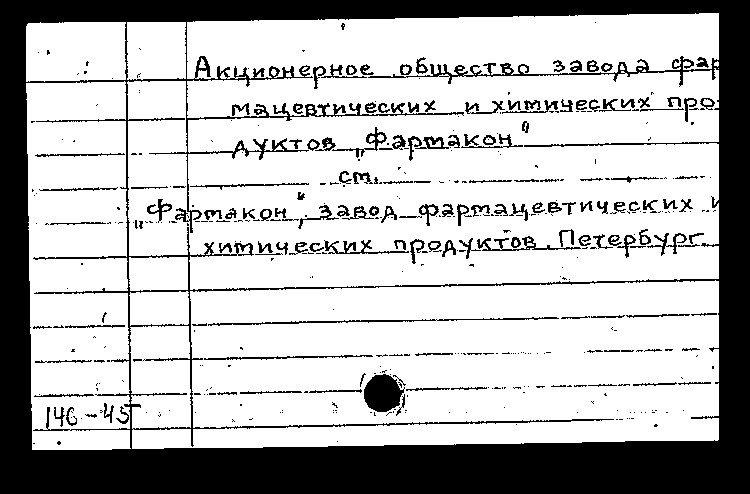 Акционерное общество завода фар
мацевтических и химических про-
дуктов „Фармакон“
ст.
„Фармакон“, завод фармацевтических и
химических продуктов. Петербург.
146-45